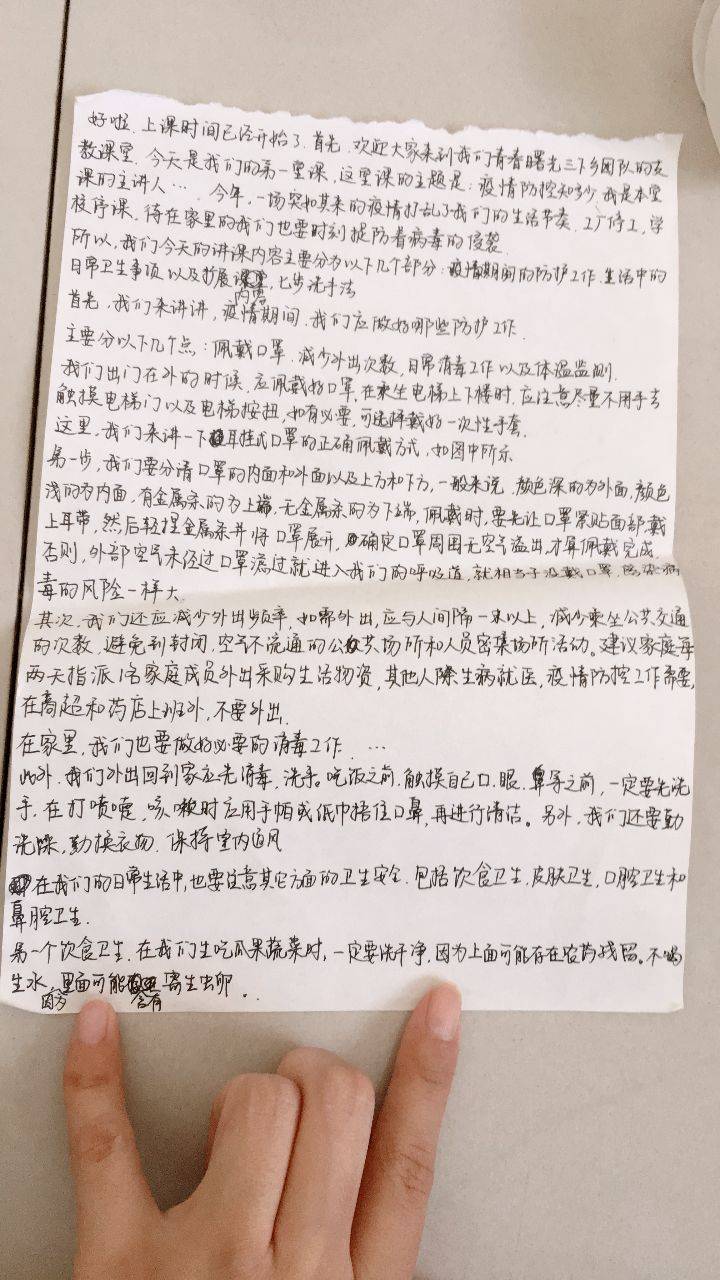 好啦，上课时间已经开始了，首先，欢迎大家来到我们青春曙光三下乡团队的支
教课堂，今天是我们的第一堂课，这堂课的主题是：疫情防控知多少，我是本堂
课的主讲人…，今年，一场突如其来的疫情打乱了我们的生活节奏，工厂停工，学
校停课，待在家里的我们也要时刻提防着病毒的侵袭.
所以，我们今天的讲课内容主要分为以下几个部分：疫情期间的防护工作、生活中的
日常卫生事项以及扩展内容，七步洗手法
首先，我们来讲讲，疫情期间，我们应做好哪些防护工作.
主要分以下几个点：佩戴口罩，减少外出次数，日常消毒工作以及体温监测.
我们出门在外的时候，应佩戴好口罩，在乘坐电梯上下楼时，应注意尽量不用手去
触摸电梯门以及电梯按扭，如有必要，可选择戴好一次性手套.
这里，我们来讲一下耳挂式口罩的正确佩戴方式，如图中所示
另一步，我们要分清口罩的内面和外面以及上方和下方，一般来说，颜色深的为外面，颜色
浅的为内面，有金属条的为上端，无金属条的为下端，佩戴时，要先让口罩紧贴面部戴
上耳带，然后轻捏金属条并将口罩展开，确定口罩周围无空气溢出，才算佩戴完成
否则，外部空气未经过口罩滤过就进入我们的呼吸道，就相当于没戴口罩，感染病
毒的风险一样大.
其次，我们还应减少外出频率，如需外出，应与人间隔一米以上，减少乘坐公共交通
的次数，避免到封闭，空气不流通的公共场所和人员密集场所活动。建议家庭每
两天指派1名家庭成员外出采购生活物资，其他人除生病就医，疫情防控工作需要，
在商超和药店上班外，不要外出.
在家里，我们也要做好必要的消毒工作.…
此外，我们外出回到家应先消毒，洗手。吃饭之前，触摸自己口、眼、鼻等之前，一定要先洗
手，在打喷嚏，咳嗽时应用手帕或纸巾捂住口鼻，再进行清洁。另外，我们还要勤
洗澡，勤换衣物，保持室内通风
在我们的日常生活中，也要注意其它方面的卫生安全，包括饮食卫生，皮肤卫生，口腔卫生和
鼻腔卫生.
另一个饮食卫生，在我们生吃瓜果蔬菜时，一定要洗干净，因为上面可能存在农药残留。不喝
生水，因为里面可能含有寄生虫卵...